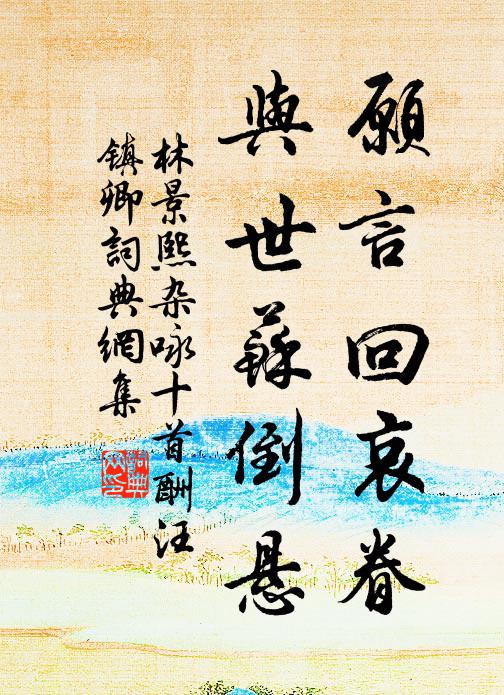 願言回哀眷
與世蘇倒悬
林景熙杂咏十首酬汪
鎮卿詞典網集